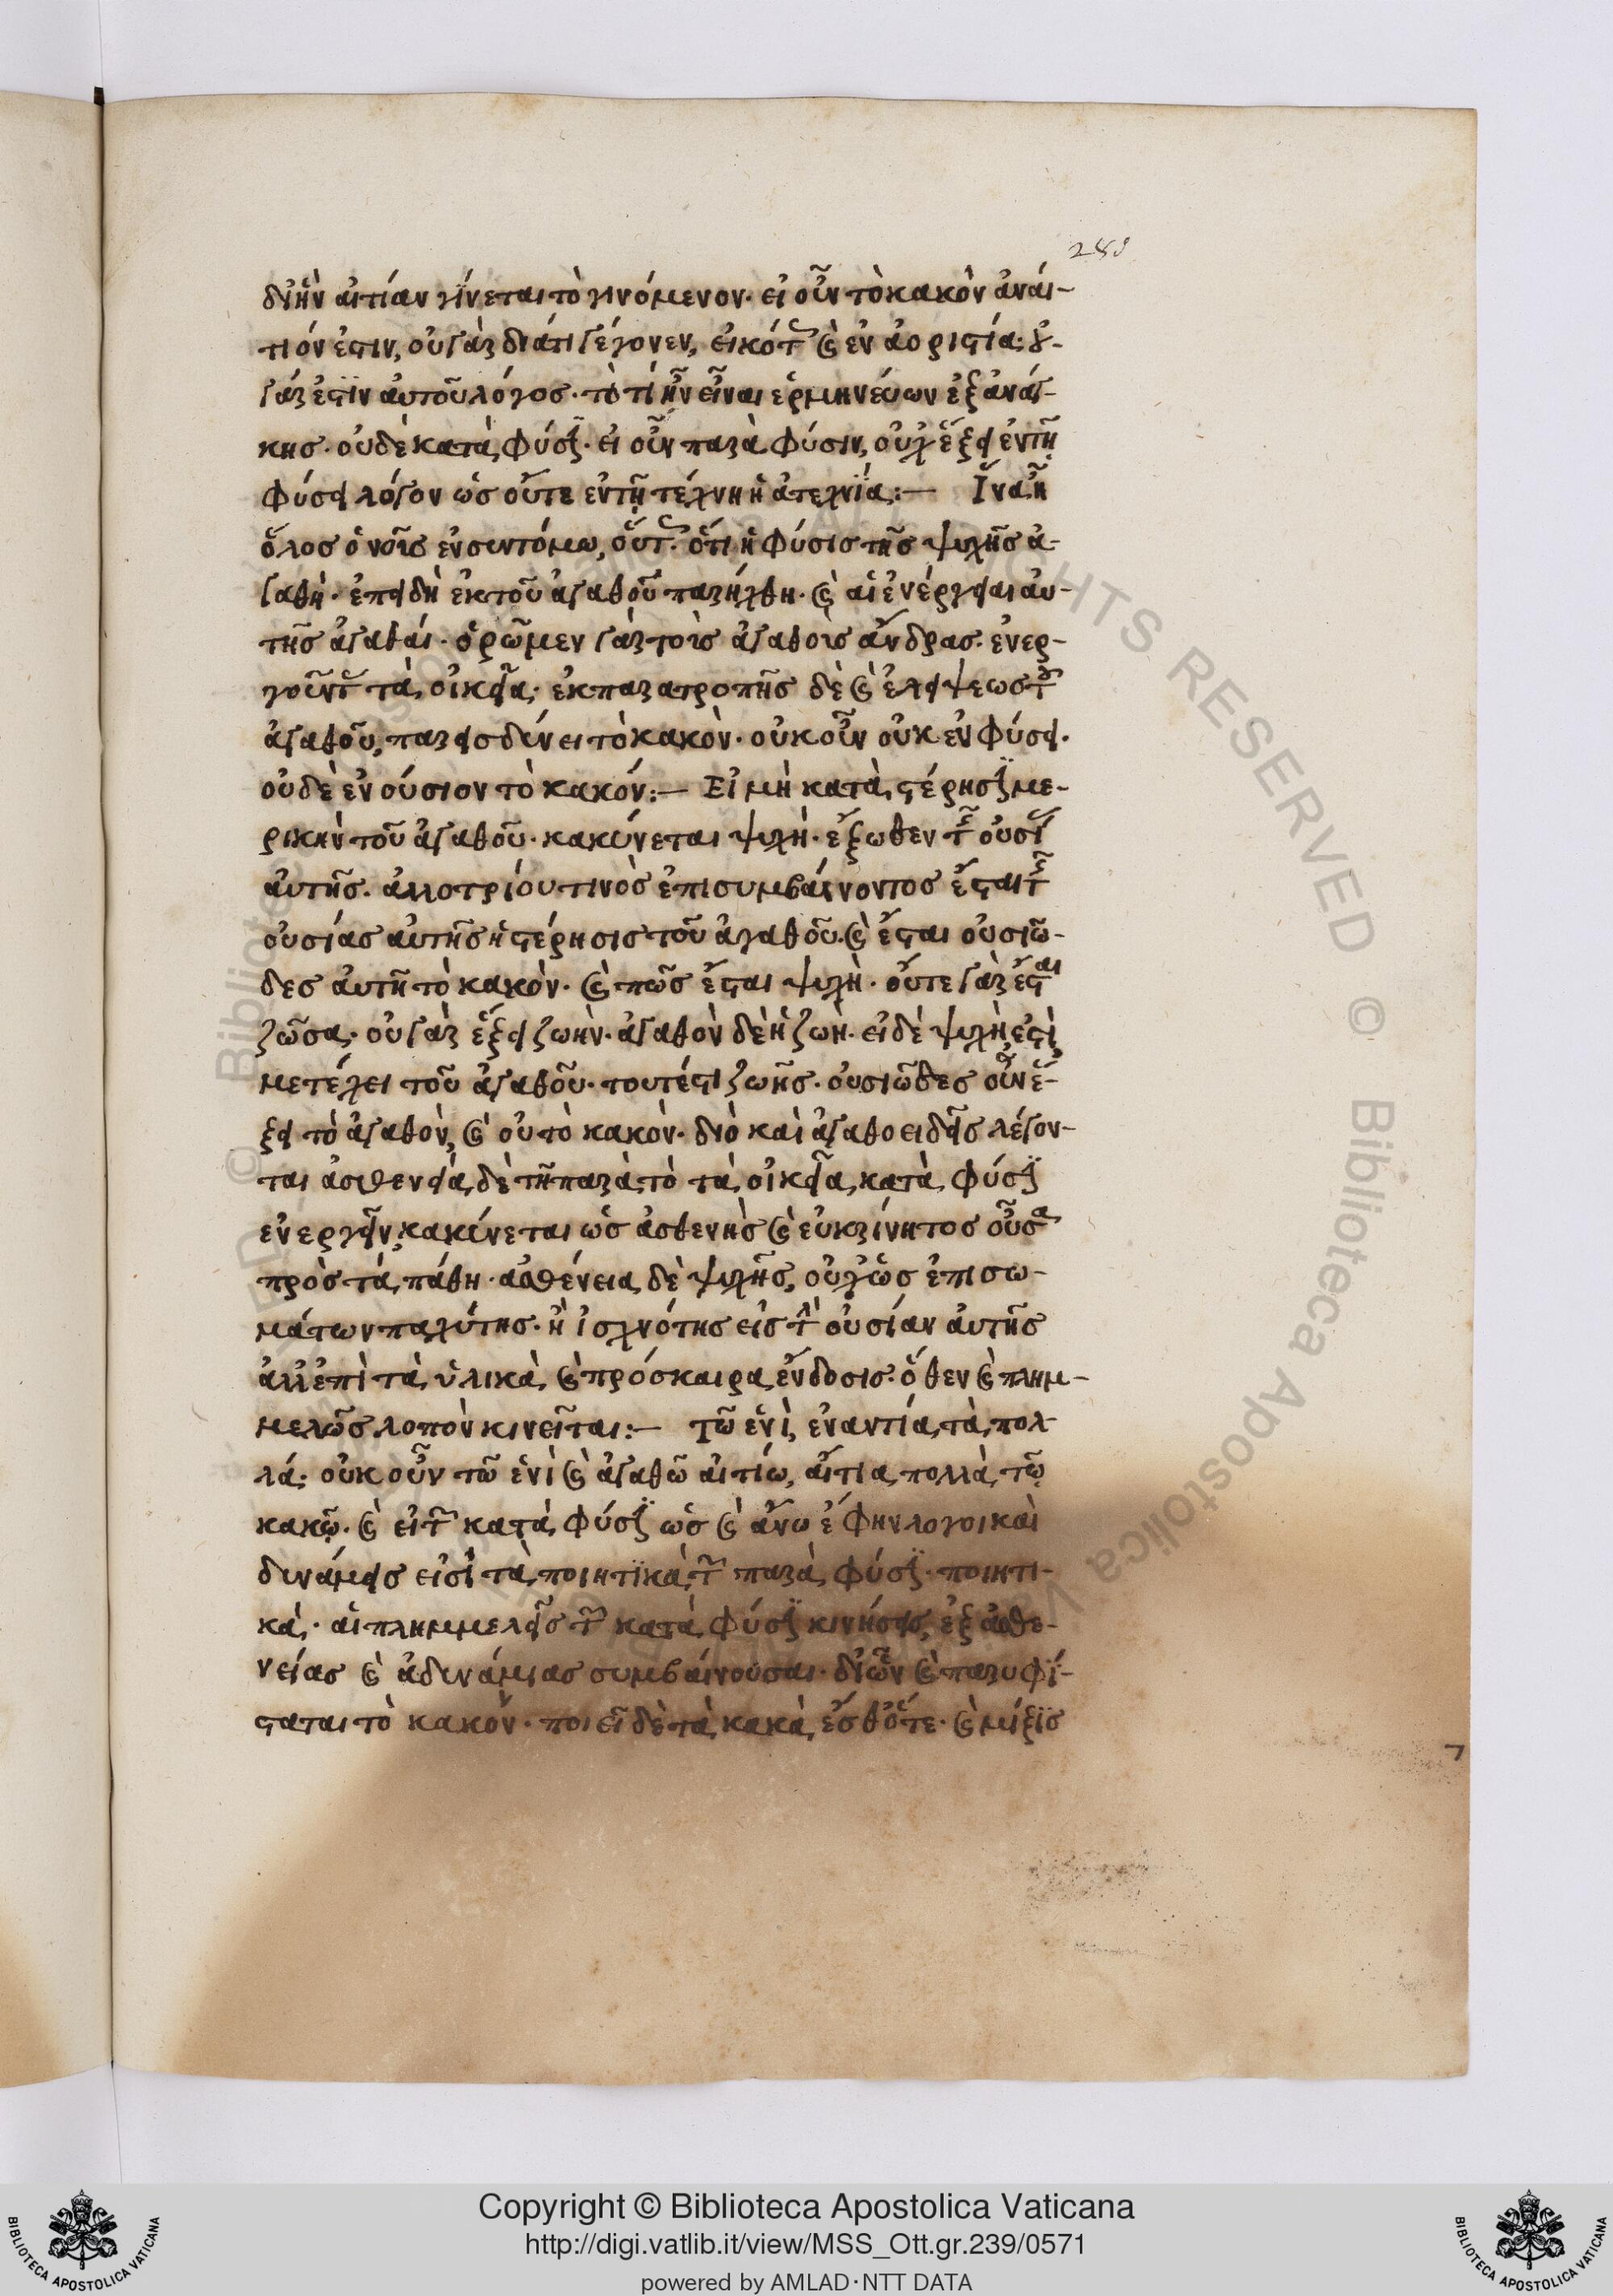 281
δι' ἣν αἰτίαν γίνεται τὸ γινόμενον· εἰ οὖν τὸ κακὸν ἀναί-
τιόν ἐστιν, οὐ γὰρ διά τι γέγονεν, εἰκότως καὶ ἐν ἀοριστία· οὐ
γάρ ἐστιν αὐτοῦ λόγος· τὸ τί ἦν εἶναι ἑρμηνεύων ἐξ ἀνάγ-
κης· οὐδὲ κατὰ φύσιν· εἰ οὖν παρὰ φύσιν, οὐχ ἕξει ἐν τῇ
φύσει λόγον ὡς οὔτε ἐν τῇ τέχνη ἡ ἀτεχνία:— Ἵνα ἦ
ὅλος ὁ νοῦς ἐν συντόμω, οὕτως· ὅτι ἡ φύσις τῆς ψυχῆς ἀ-
γαθή· ἐπειδὴ ἐκ τοῦ ἀγαθοῦ παρήχθη· καὶ αἱ ἐνέργειαι αὐ-
τῆς ἀγαθαί· ὁρῶμεν γὰρ τοὺς ἀγαθοὺς ἄνδρας· ἐνερ-
γοῦντας τὰ οἰκεῖα· ἐκ παρατροπῆς δὲ καὶ ἐλείψεως τοῦ
ἀγαθοῦ, παρεισδύνει τὸ κακὸν· οὐκοῦν οὐκ ἐν φύσει·
οὐδὲ ἐνούσιον τὸ κακόν:— Εἰ μὴ κατὰ στέρησιν με-
ρικὴν τοῦ ἀγαθοῦ· κακύνεται ψυχὴ· ἔξωθεν τῆς οὐσίας
αὐτῆς· ἀλλοτρίου τινὸς ἐπισυμβαίνοντος ἔσται τῆς
οὐσίας αὐτῆς ἡ στέρησις τοῦ ἀγαθοῦ· καὶ ἔσται οὐσιῶ-
δες αὐτῆ τὸ κακὸν· καὶ πῶς ἔσται ψυχὴ· οὔτε γὰρ ἔσται
ζῶσα· οὐ γὰρ ἕξει ζωὴν· ἀγαθὸν δὲ ἡ ζωὴ· εἰ δὲ ψυχὴ ἐστὶ
μετέχει τοῦ ἀγαθοῦ· τουτέστι ζωῆς· οὐσιῶδες οὖν ἕ-
ξει τὸ ἀγαθὸν, καὶ οὐ τὸ κακὸν· διὸ καὶ ἀγαθοειδεῖς λέγον-
ται ἀσθενεία δὲ τῆ παρὰ τὸ τὰ οἰκεῖα κατὰ φύσιν
ἐνεργεῖν, κακύνεται ὡς ἀσθενὴς καὶ εὐκρίνητος οὖσα
πρὸς τὰ πάθη· ἀσθένεια δὲ ψυχῆς, οὐχ ὡς ἐπὶ σω-
μάτων παχύτης· ἢ ἰσχνότης εἰς τὴν οὐσίαν αὐτῆς
ἀλλ' ἐπὶ τὰ ὑλικὰ καὶ πρόσκαιρα ἔνδοσις· ὅθεν καὶ πλημ-
μελῶς λοπὸν κινεῖται:— Τῶ ἑνὶ, ἐναντία τὰ πολ-
λά· οὐκοῦν τῶ ἑνὶ καὶ ἀγαθῶ αἰτίω, αἴτια πολλὰ τῶ
κακῷ· καὶ εἰ τῶν κατὰ φύσιν ὡς καὶ ἄνω ἔφην λόγοι καὶ
δυνάμεις εἰσὶ τὰ ποιητικὰ, τῶν παρὰ φύσιν· ποιητι-
κὰ· αἱ πλημμελεῖς τῶν κατὰ φύσιν κινήσεις, ἐξ ἀσθε-
νείας καὶ ἀδυνάμιας συμβαίνουσαι· δι' ὧν καὶ παρυφί-
σταται τὸ κακόν· ποιεῖ δὲ τὰ κακὰ ἔσθ' ὅτε· καὶ μίξις
Copyright © Biblioteca Apostolica Vaticana
http://digi.vatlib.it/view/MSS_Ott.gr.239/0571
powered by AMLAD·NTT DATA